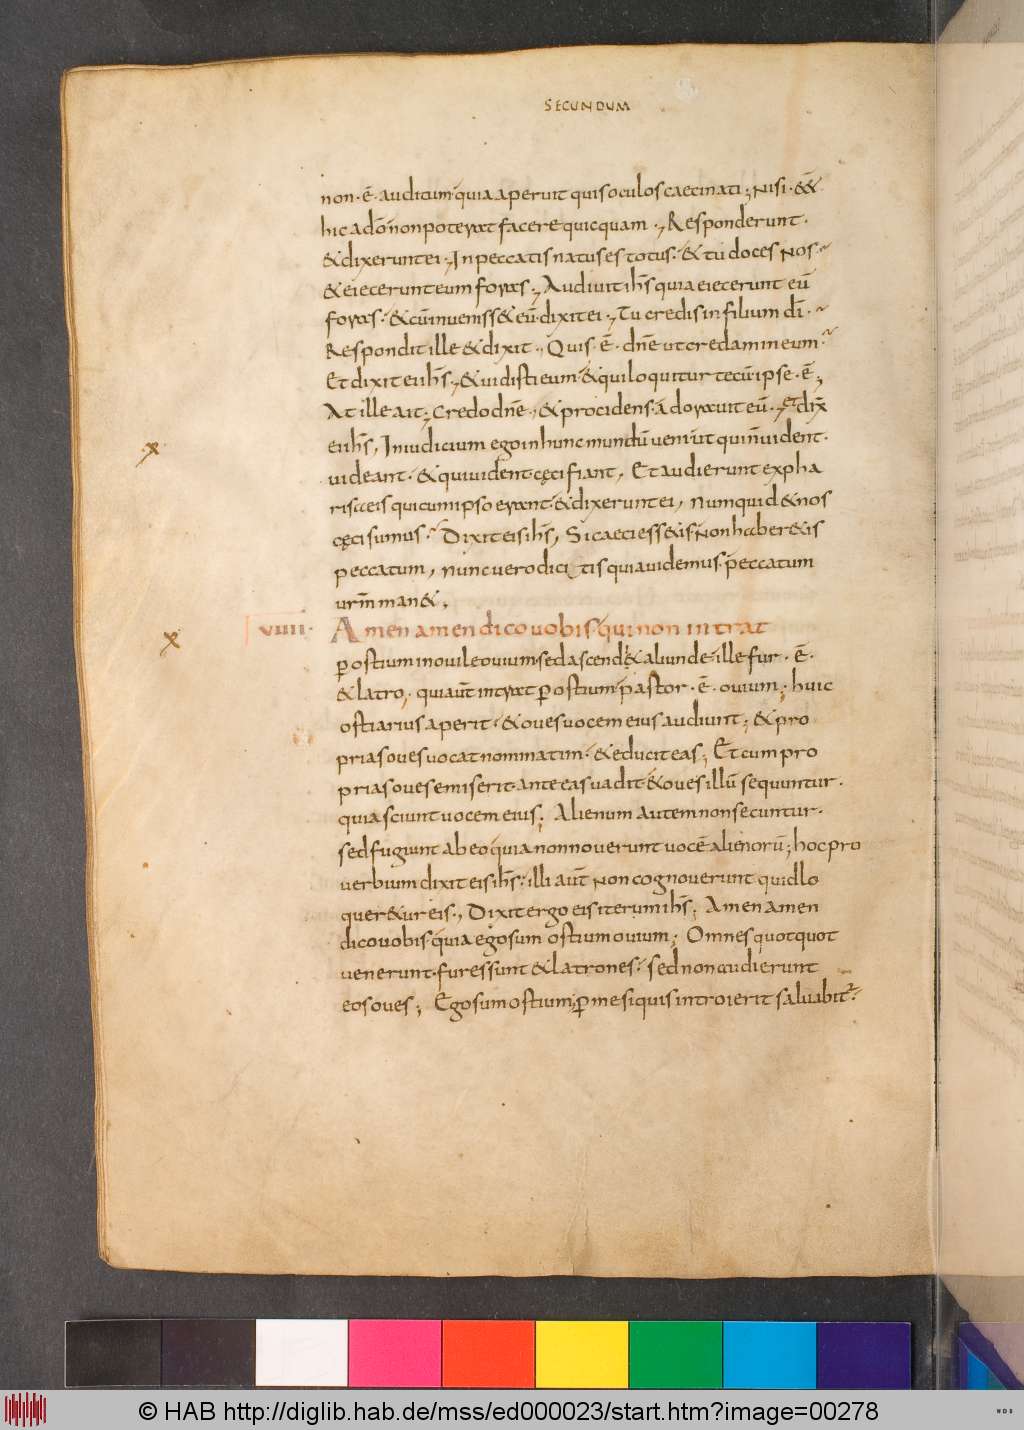 SECUNDUM
non · ē · auditum quia aperuit quis oculos caeci nati ; Nisi · e&
hic a dō non poterat facere quicquam · Responderunt ·
& dixerunt ei · In peccatis natus es totus · & tu doces nos ·
& eiecerunt eum foras · Audivit ihs quia eiecerunt eū
foras · & cū inveniss& eū · dixit ei · Tu credis in filium dī ·
Respondit ille & dixit · Quis ē · dne ut credam in eum ·
Et dixit ei ihs · & vidisti eum · & qui loquitur tecū ipse · ē ;
At ille ait ; Credo dne · & procidens adoravit eū · et dix̄
ei ihs, In iudicium ego in hunc mundū veni ut qui n̄ vident ·
videant · & qui vident cęci fiant, Et audierunt ex pha
risaeis qui cum ipso erant · & dixerunt ei, Numquid & nos
cęci sumus · Dixit eis ihs, Si caeci ess&is non haber&is
peccatum, nunc vero dicitis quia videmus · peccatum
urm̄ man& ,
viiii · Amen amen dico vobis qui non intrat
p ostium in ovile ovium · sed ascend& aliunde · ille fur · ē ·
& latro, · qui aūt intrat p ostium pastor · ē · ovium ; huic
ostiarius aperit · & oves vocem eius audiunt ; & pro
prias oves vocat nominatim · & educit eas ; Et cum pro
prias oves emiserit · ante eas vadit · & oves illū sequuntur ·
quia sciunt vocem eius ; Alienum autem non secuntur ·
sed fugiunt ab eo quia non noverunt vocē alienorū ; hoc pro
verbium dixit eis ihs · illi aūt non cognoverunt quid lo
quer&ur eis ., Dixit ergo eis iterum ihs ; Amen amen
dico vobis · quia ego sum ostium ovium ; Omnes quotquot
venerunt · fures sunt & latrones · sed non audierunt
eos oves ; Ego sum ostium, p me si quis introierit salvabit ·
© HAB http://diglib.hab.de/mss/ed000023/start.htm?image=00278